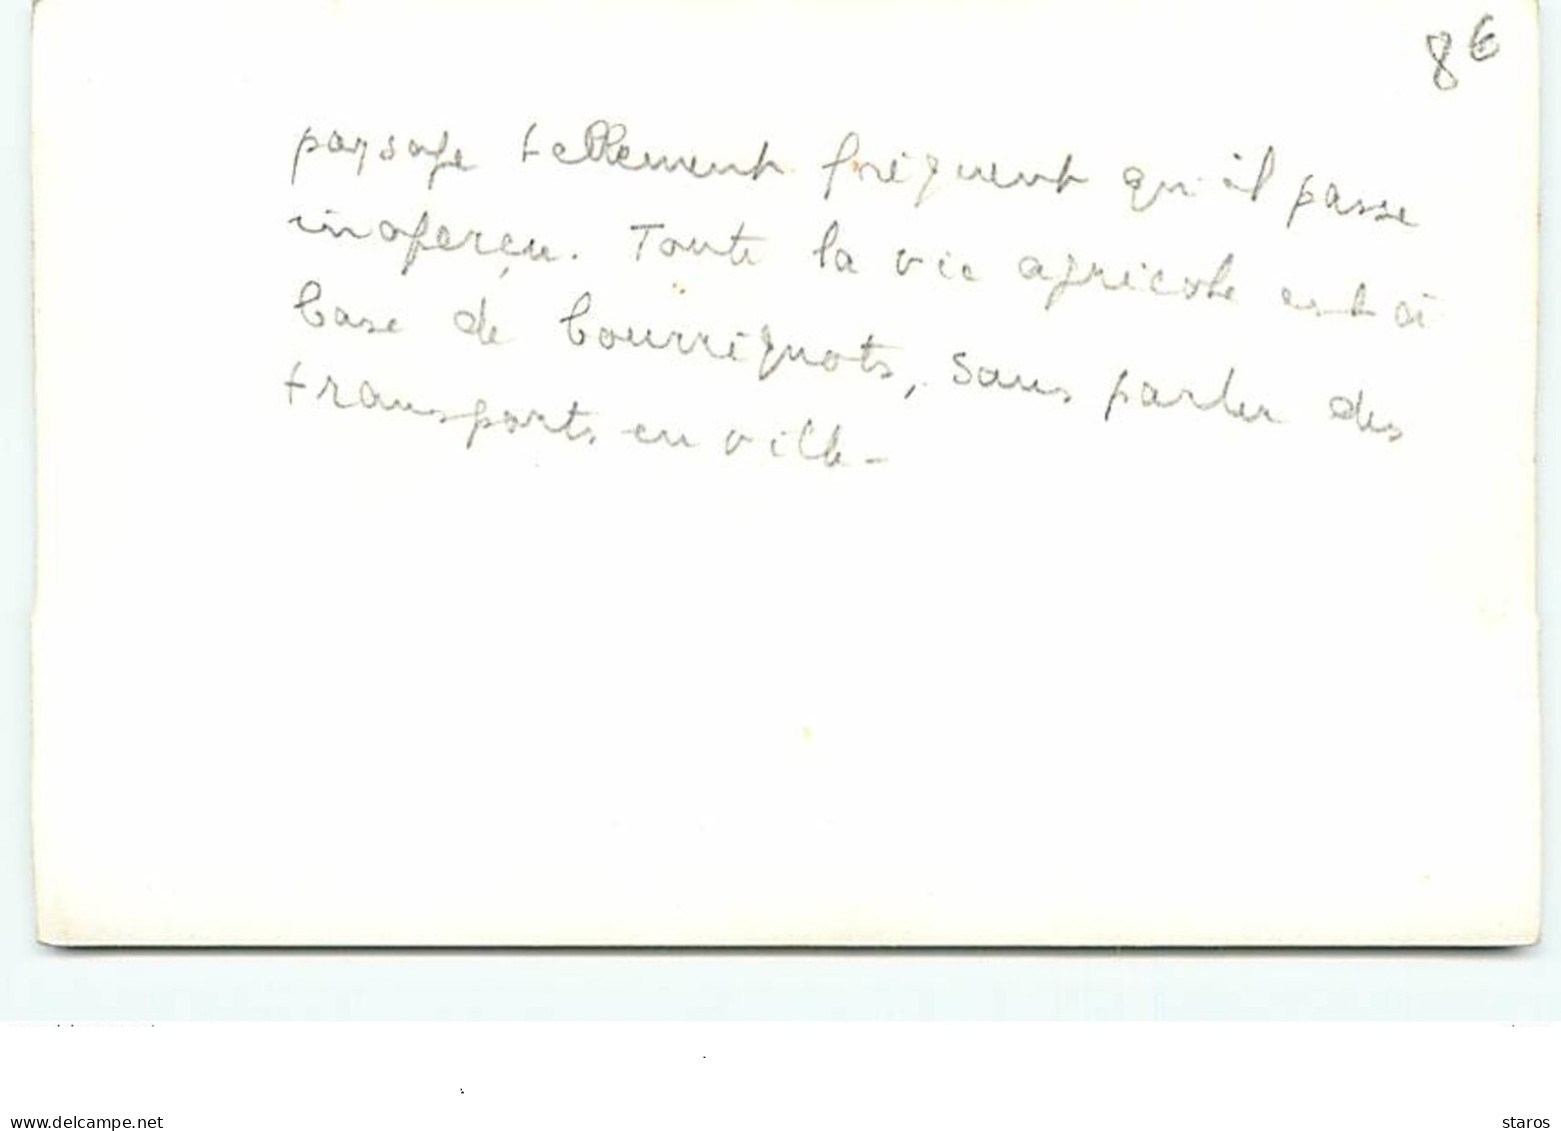 8€
paysage tellement fréquent qu'il passe
inaperçu. Toute la vie agricole est à
base de bourriquots, sans parler des
transports en ville -
www.delcampe.net
staros